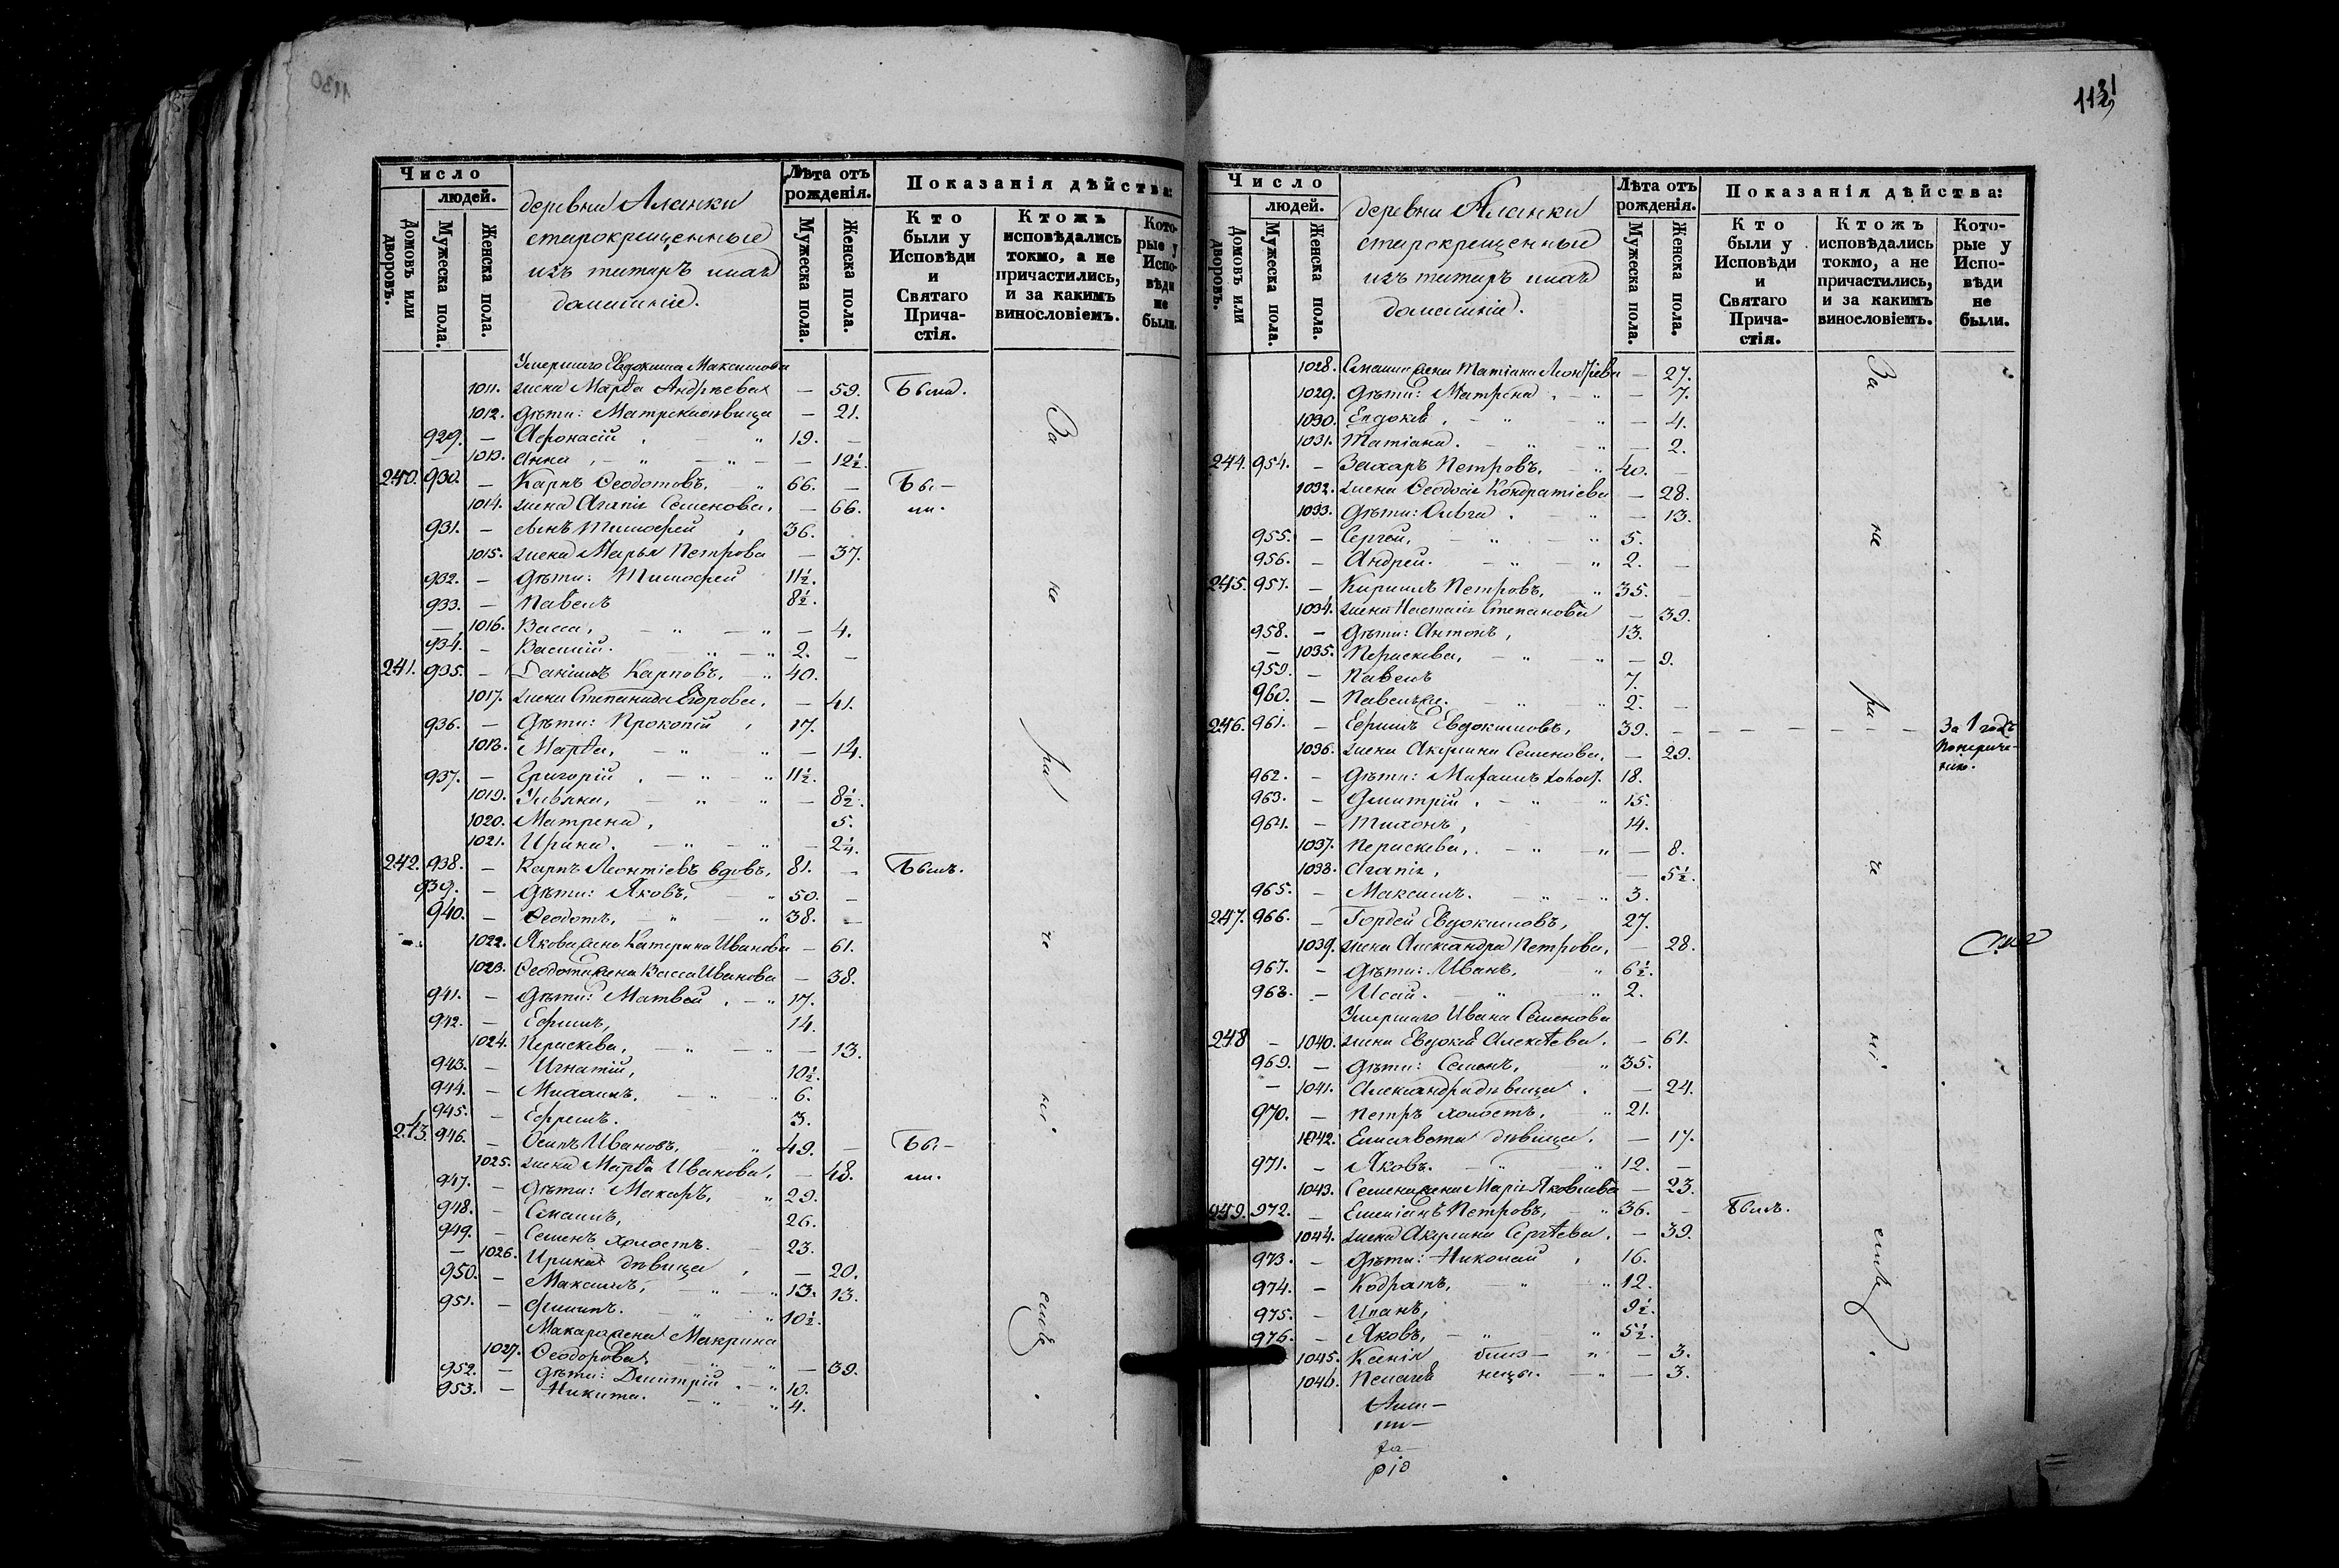 1130
Число
людей.
Домовъ или дворовъ.
Мужеска пола.
Женска пола.
деревни Аланки
старокрещенные
изъ татаръ и ихъ
домашніе.
Лѣта отъ рожденія.
Мужеска пола.
Женска пола.
Показанія дѣйства:
Кто были у Исповѣди и Святаго Прича-стія.
Ктожъ исповѣдались токмо, а не причастились, и за какимъ винословіемъ.
Кото-рые у Испо-вѣди не были.
Умершаго Евдокима Максимова
1011. жена Марѳа Андрѣева — 59. Была.
1012. дѣти: Матрена дѣвица — 21.
929. — Афонасій, — " 19. —
— 1013. Анна, — " — " — — 12½.
240. 930. — Карпъ Ѳеодотовъ, " 66. — Бы-
1014. жена Агапія Семенова, — 66. ли.
931. — сынъ Тимофей, 36.
1015. жена Марья Петрова — 37.
932. — дѣти: Тимофей 11½.
933. — Павелъ 8½.
— 1016. Васса, — " — " — 4.
934. — Василій. — " — " 2. —
241. 935. — Даніилъ Карповъ, — " 40.
1017. жена Степанида Егорова, — 41.
936. — дѣти: Прокопій, 17.
1018. Марѳа, — " " — 14.
937. — Григорій, — " — " 11½.
1019. Ульяна, — " — " — 8½.
1020. Матрена, 5.
1021. Ирина. — " — " — 2¼.
242. 938. — Карпъ Леонтіевъ вдовъ, 81. — Былъ.
939. — дѣти: Яковъ, — " 50. —
940. — Ѳеодотъ, — " — " 38. —
1022. Якова жена Катерина Иванова — 61.
1023. Ѳеодота жена Васса Иванова — 38.
941. — дѣти: Матвей, — " 17.
942. — Ефимъ, 14.
1024. Пераскева, — " — " — 13.
943. — Игнатій, 10½.
944. — Михаилъ. — " " 6.
945. — Ефремъ. 3.
243. 946. — Осипъ Ивановъ, — " 49. — Бы-
1025. жена Марѳа Иванова, — 48. ли.
947. — дѣти: Макаръ, " 29.
948. — Самоилъ, 26.
949. — Семенъ холостъ. — 23.
— 1026. Ирина дѣвица, — 20.
950. — Максимъ, — " — " 13. 13.
951. — Филипъ. — " — " 10½.
Макара жена Макрина
1027. Ѳеодорова — " — " — 39.
952. — дѣти: Дмитрій — " 10.
953. — Никита. — " " 4.
За не ра че ні емъ.
1131
Число
людей.
Домовъ или дворовъ.
Мужеска пола.
Женска пола.
деревни Аланки
старокрещенные
изъ татаръ и ихъ
домашніе.
Лѣта отъ рожденія.
Мужеска пола.
Женска пола.
Показанія дѣйства:
Кто были у Исповѣди и Святаго Прича-стія.
Ктожъ исповѣдались токмо, а не причастились, и за какимъ винословіемъ.
Кото-рые у Испо-вѣди не были.
1028. жена Матіана — 27.
1029. дѣти: Матрена, — " — 7.
1030. Евдокія, — " — " — 4.
1031. Матіана. — " — " — 2.
244. 954. — Захаръ Петровъ, — " 40. —
1032. жена Ѳеодосія Кондратіева — 28.
1033. дѣти: Ольга. — " — 13.
955. — Сергей, — " — " 5.
956. — Андрей. — " — " 2. —
245. 957. — Кирилъ Петровъ, " 35. —
1034. жена Настасія Степанова — 39.
958. — дѣти: Антонъ, 13.
— 1035. Пераскева, — " — " — 9.
959. — Павелъ 7.
960. — — " — " 2. —
246. 961. — Ефимъ Евдокимовъ, 39. — — — — — — — За 1 годъ
1036. жена Акулина Семенова. — 29.
962. — дѣти: 18.
963. — Дмитрій, — " — " 15.
964. — Тихонъ, 14.
1037. Пераскева, — " — " — 8.
1038. Агапія, — 5½.
965. — Максимъ. — " — " 3.
247. 966. — Гордей Евдокимовъ, 27.
1039. жена Александра Петрова, — 28.
967. — дѣти: Иванъ, " 6½.
968. — Исай. — " — " 2.
Умершаго Ивана Семенова
248 — 1040. жена Евдокія Алексѣева. — 61.
969. — дѣти: Семенъ, " 35.
— 1041. Александра дѣвица. — 24.
970. — Петръ холостъ, — " 21.
1042. Елисавета дѣвица. — 17.
971. — Яковъ. — " — " 12. —
1043. Семена жена Марія Яковлева — 23.
249. 972. — Емеліанъ Петровъ, — " 36. — Былъ.
1044. жена Акулина Сергѣева. — 39.
973. — дѣти: Николай, 16.
974. — Кодратъ, — " — " 12.
975. — Иванъ, 9½.
976. — Яковъ, — " — " 5½.
1045. Ксенія близ- " — 3.
1046. Пелагія нецы. — " — 3.
За не ра че ні емъ.